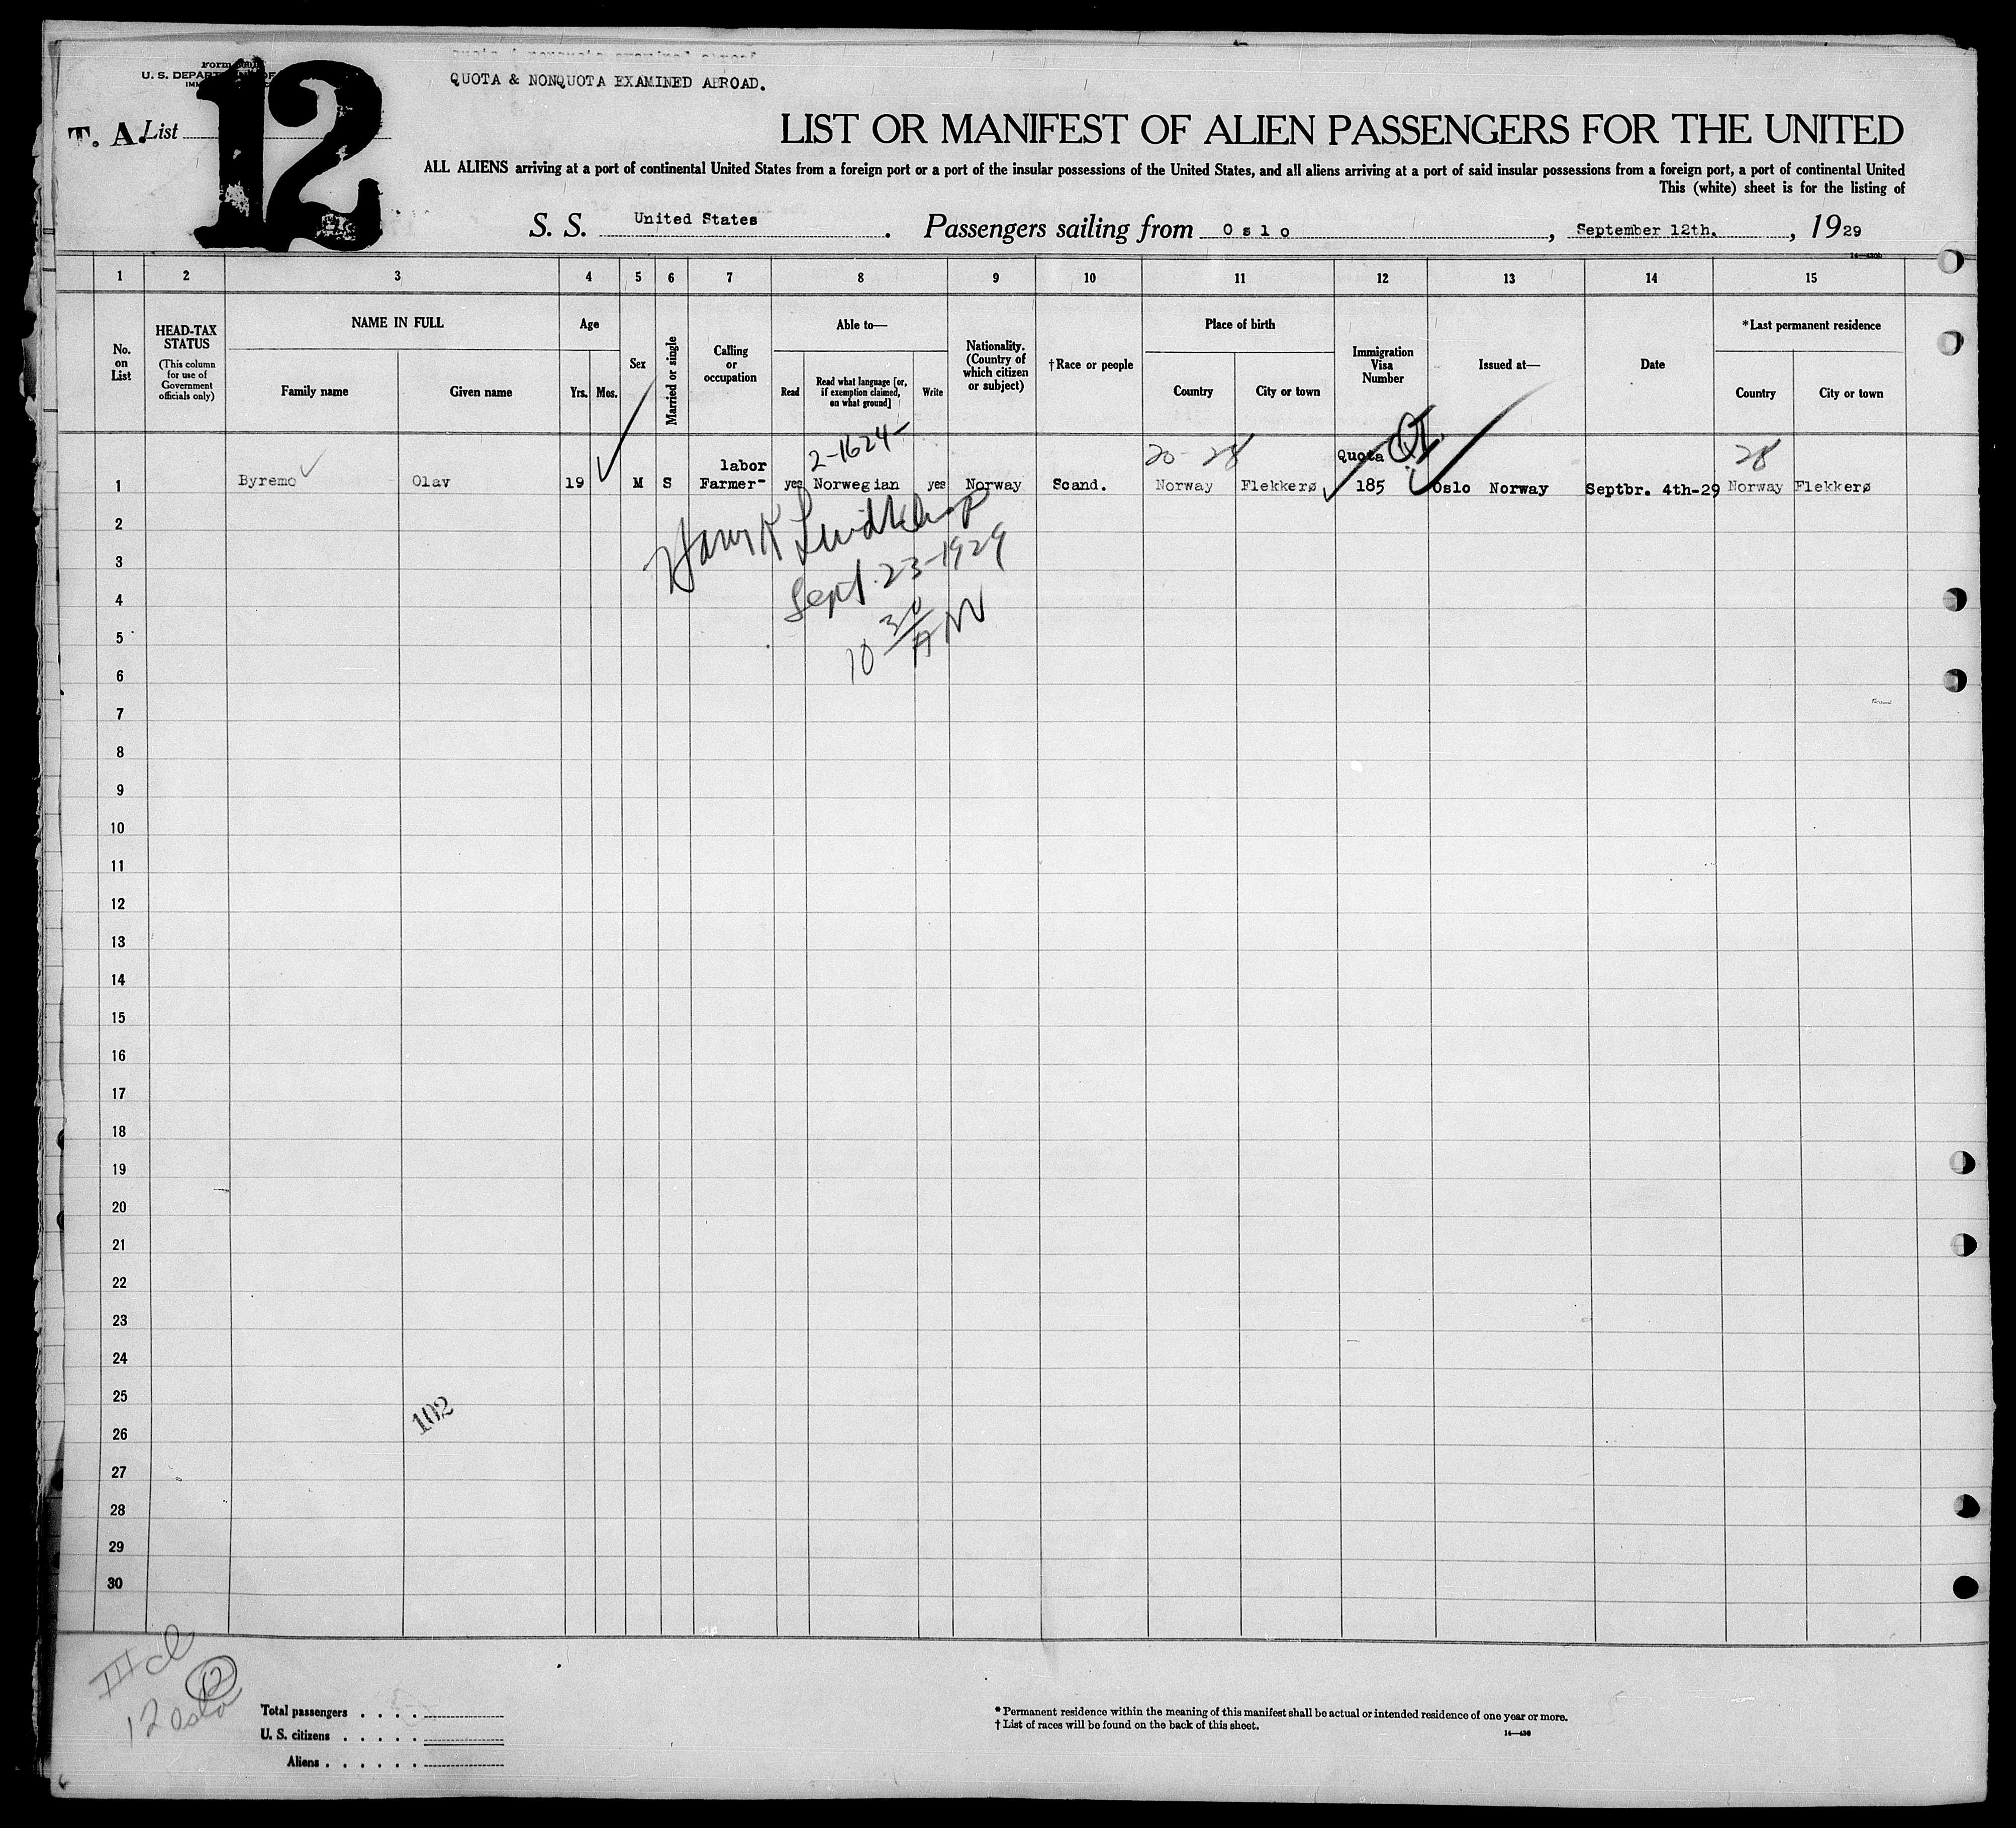 Form 500
U. S. DEPAR
QUOTA & NONQUOTA EXAMINED ABROAD.
T. A. List 12
LIST OR MANIFEST OF ALIEN PASSENGERS FOR THE UNITED
ALL ALIENS arriving at a port of continental United States from a foreign port or a port of the insular possessions of the United States, and all aliens arriving at a port of said insular possessions from a foreign port, a port of continental United
This (white) sheet is for the listing of
S. S. United States. Passengers sailing from Oslo, September 12th., 1929
1 2 3 4 5 6 7 8 9 10 11 12 13 14 15
No. on List
HEAD-TAX STATUS (This column for use of Government officials only)
NAME IN FULL
Family name Given name
Age
Yrs. Mos.
Sex
Married or single
Calling or occupation
Able to—
Read Read what language [or, if exemption claimed, on what ground] Write
Nationality. (Country of which citizen or subject)
†Race or people
Place of birth
Country City or town
Immigration Visa Number
Issued at—
Date
*Last permanent residence
Country City or town
labor 2-1624- 20 28 Quota QI 28
1 Byremo Olav 19 M S Farmer- yes Norwegian yes Norway Scand. Norway Flekkerø 185 Oslo Norway Septbr. 4th-29 Norway Flekkerø
2
Sept. 23-1929
3
4
10 30 AM
5
6
7
8
9
10
11
12
13
14
15
16
17
18
19
20
21
22
23
24
25
102
26
27
28
29
30
III cl
12
12 Oslo
Total passengers . . . .
U. S. citizens . . . . .
Aliens . . . . . .
* Permanent residence within the meaning of this manifest shall be actual or intended residence of one year or more.
† List of races will be found on the back of this sheet.
14—430